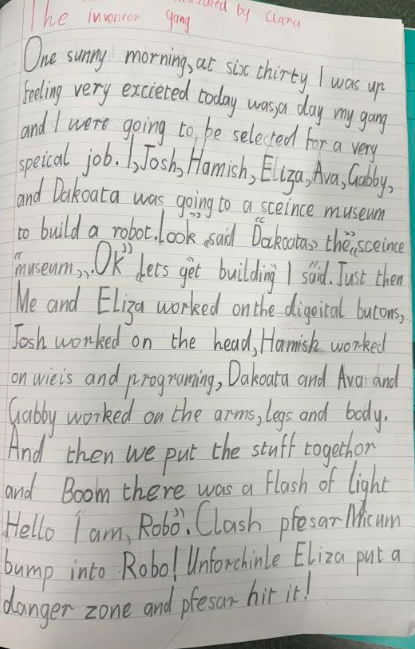 by Clara
The inventor gang
One sunny morning, at six thirty I was up
feeling very excieted today was, a day my gang
and I were going to be selected for a very
speical job. I, Josh, Hamish, Eliza, Ava, Gabby,
and Dakoata was going to a sceince museum
to build a robot. Look „ said Dakoata„ the „ sceince
museum„. "OK" Lets get building I said. Just then
Me and Eliza worked on the digoital butons,
Josh worked on the head, Hamish worked
on wieis and programing, Dakoata and Ava and
Gabby worked on the arms, legs and body.
And then we put the stuff togethor
and Boom there was a flash of light
Hello I am, Robo". Clash pfesar Micum
bump into Robo! Unforchinle Eliza put a
danger zone and pfesar hit it!